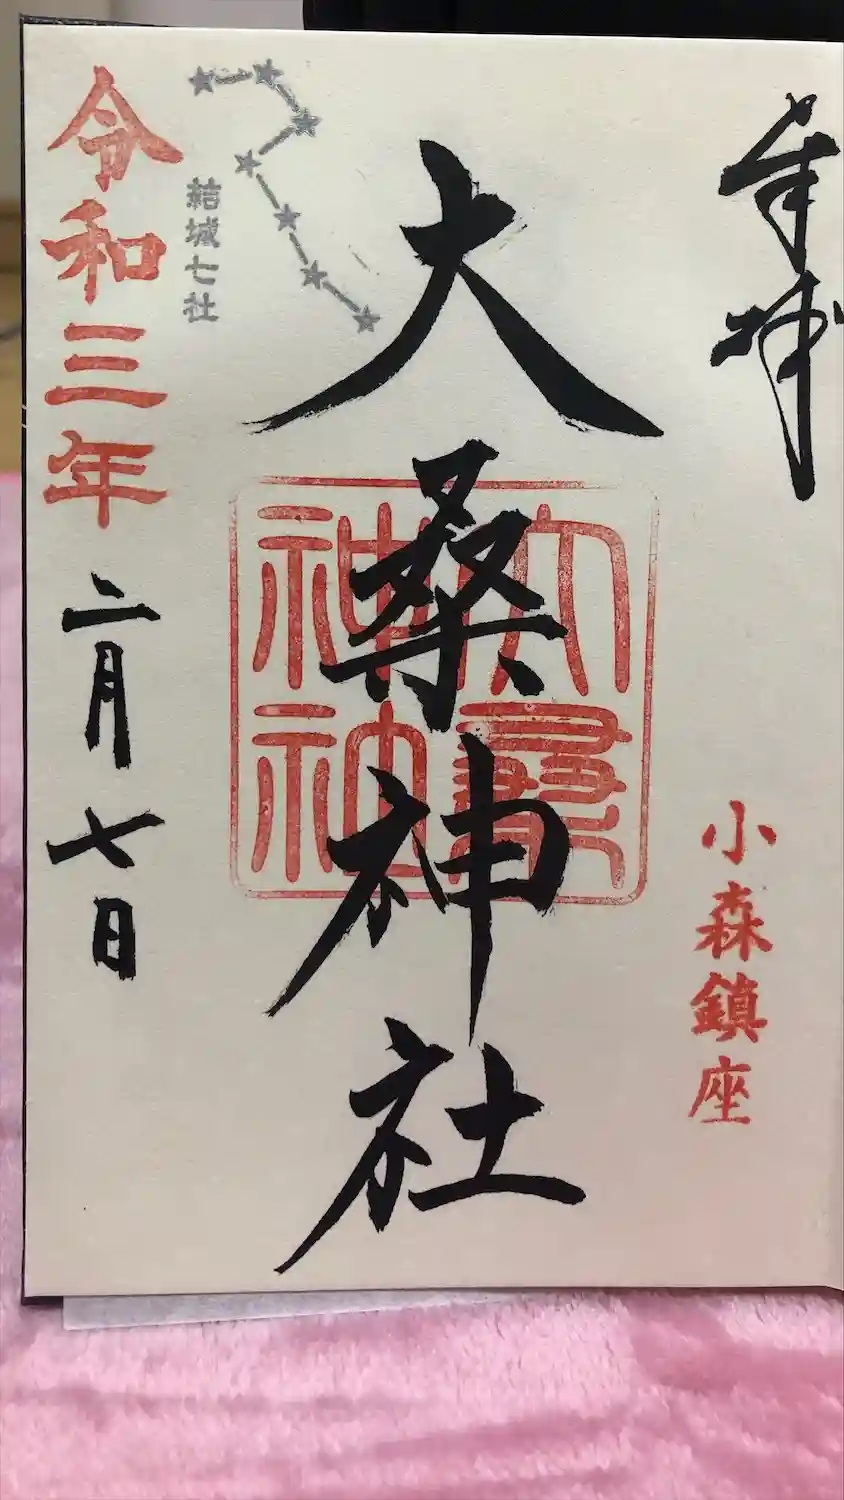 奉拝
小森鎮座
大桑神社
結城七社
令和三年二月七日